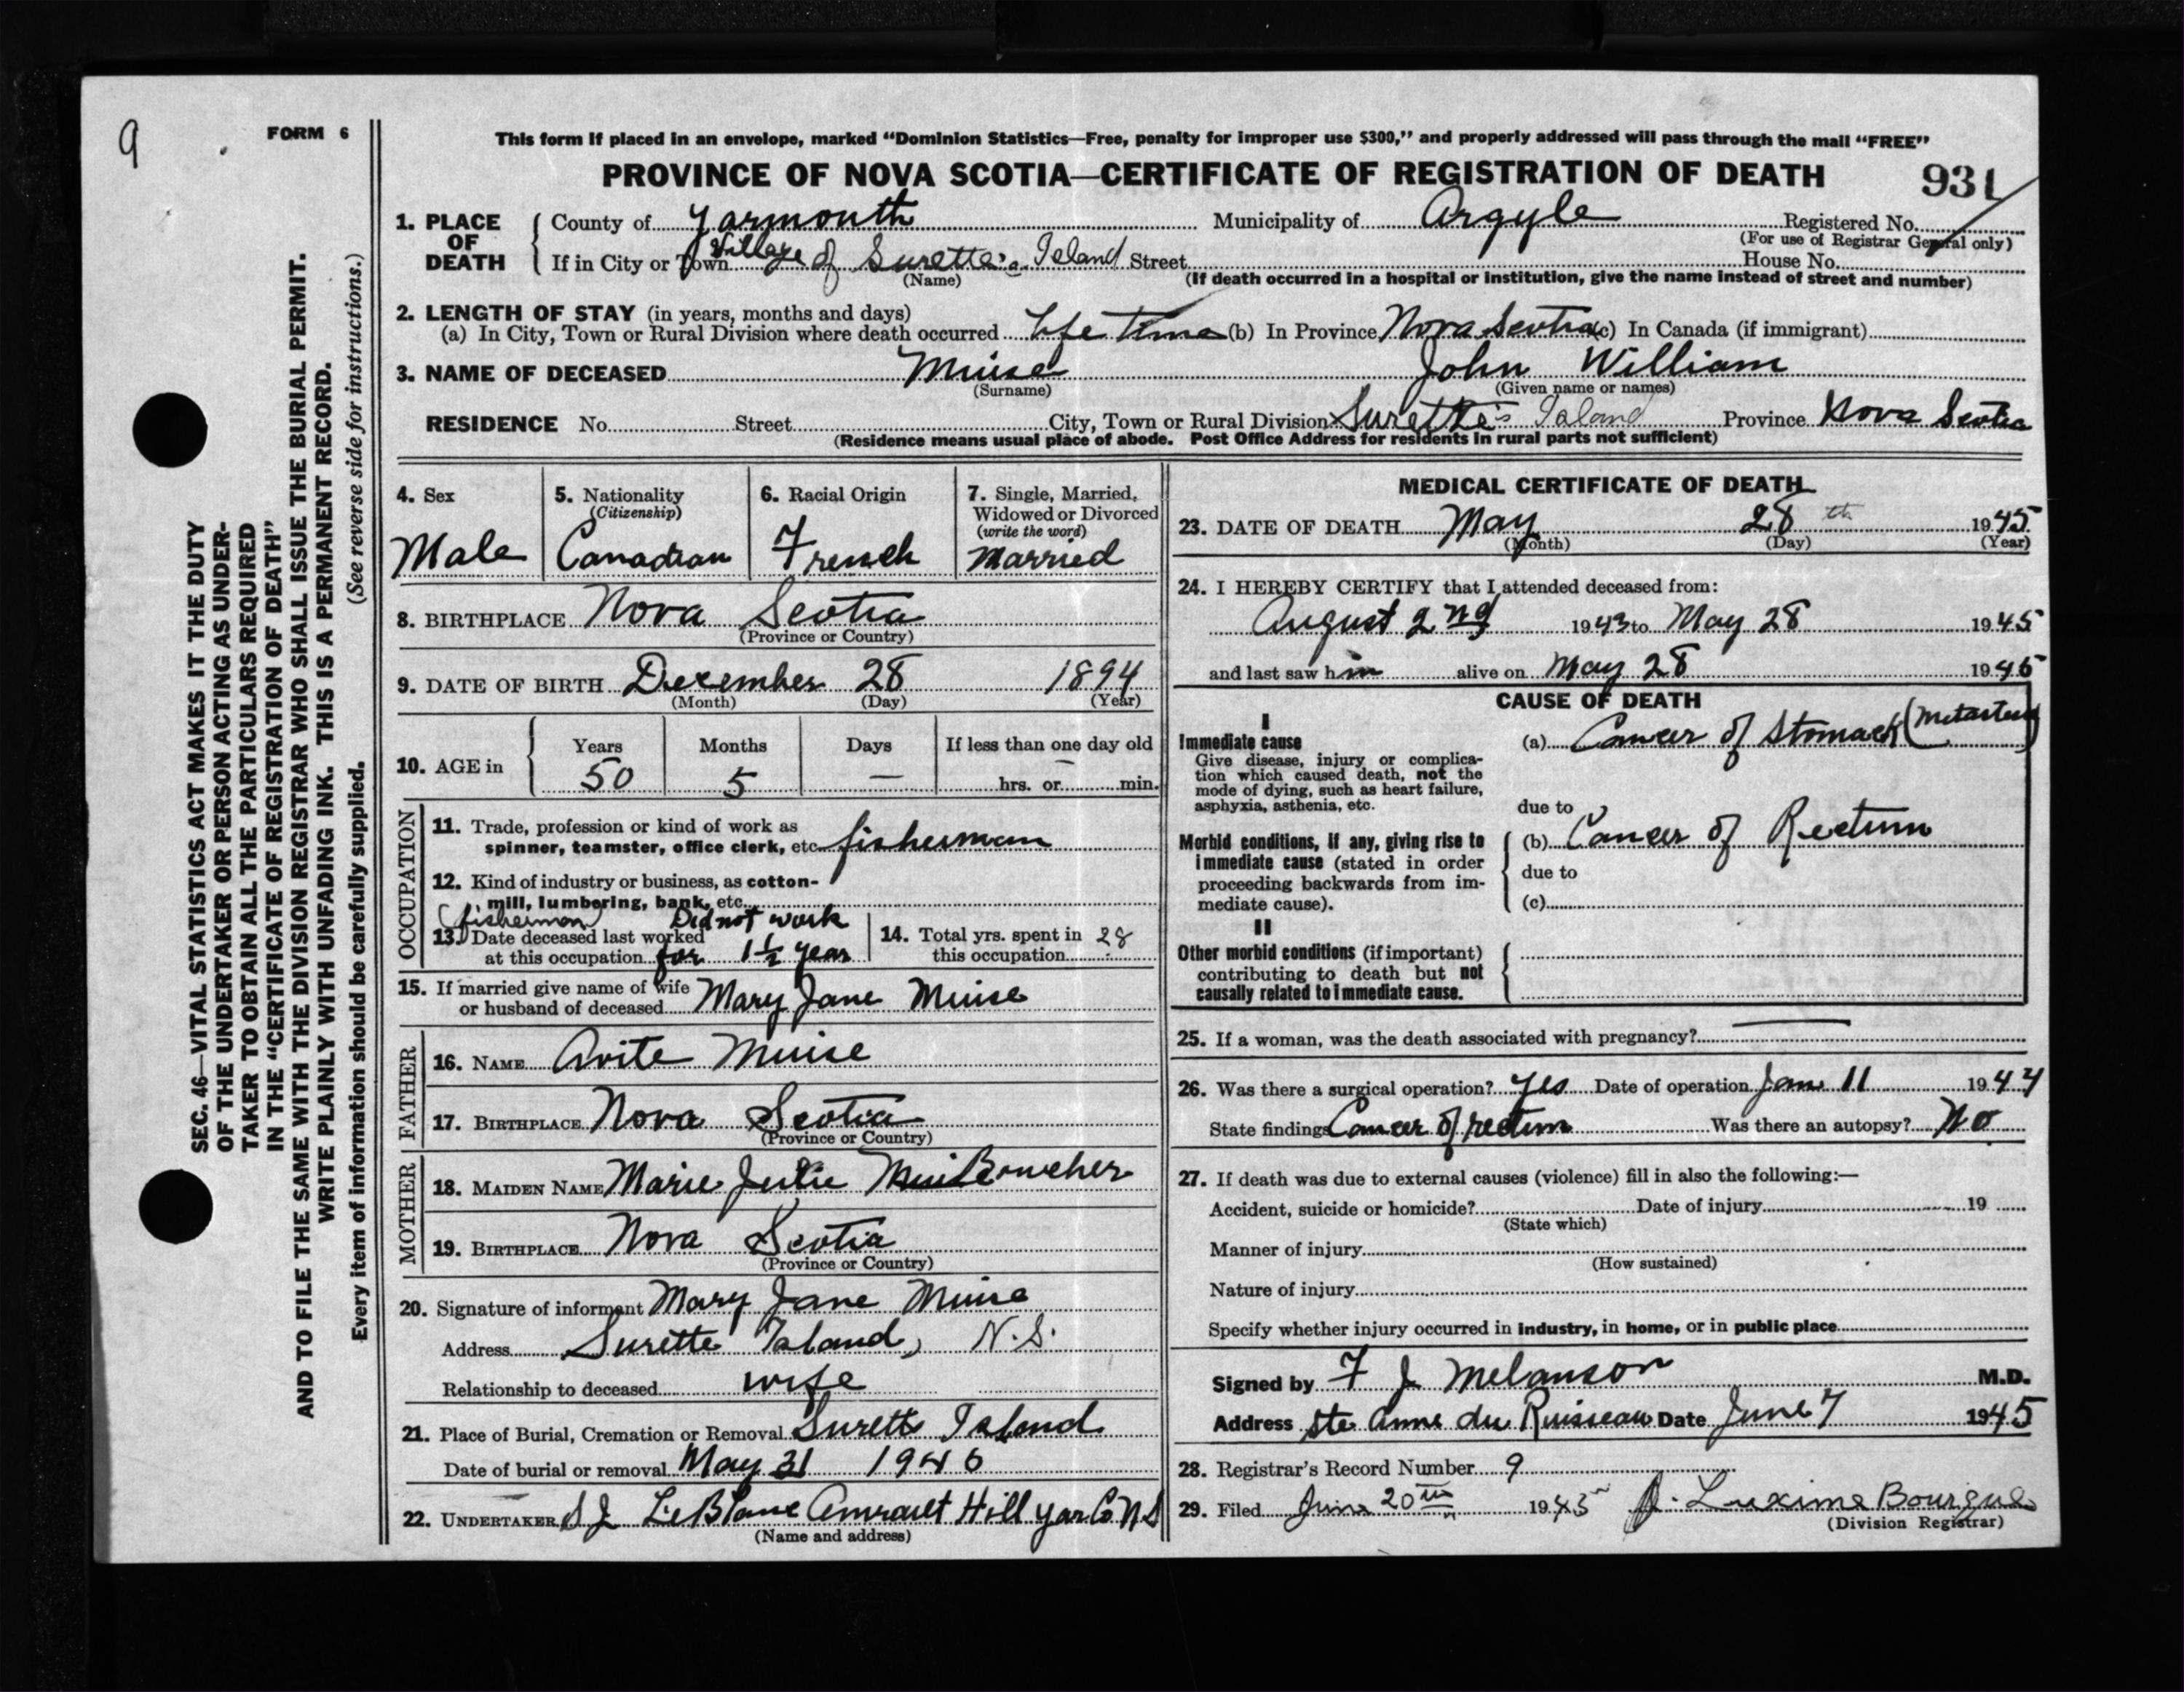 9
FORM 6
SEC. 46—VITAL STATISTICS ACT MAKES IT THE DUTY
OF THE UNDERTAKER OR PERSON ACTING AS UNDER-
TAKER TO OBTAIN ALL THE PARTICULARS REQUIRED
IN THE "CERTIFICATE OF REGISTRATION OF DEATH"
AND TO FILE THE SAME WITH THE DIVISION REGISTRAR WHO SHALL ISSUE THE BURIAL PERMIT.
WRITE PLAINLY WITH UNFADING INK. THIS IS A PERMANENT RECORD.
Every item of information should be carefully supplied. (See reverse side for instructions.)
This form if placed in an envelope, marked "Dominion Statistics—Free, penalty for improper use $300," and properly addressed will pass through the mail "FREE"
PROVINCE OF NOVA SCOTIA—CERTIFICATE OF REGISTRATION OF DEATH 931
1. PLACE OF DEATH
County of Yarmouth Municipality of Argyle Registered No.
(For use of Registrar General only)
If in City or Town Village of Surette's Island Street House No.
(Name) (If death occurred in a hospital or institution, give the name instead of street and number)
2. LENGTH OF STAY (in years, months and days)
(a) In City, Town or Rural Division where death occurred Life time (b) In Province Nova Scotia (c) In Canada (if immigrant)
3. NAME OF DECEASED Muise John William
(Surname) (Given name or names)
RESIDENCE No. Street City, Town or Rural Division Surette's Island Province Nova Scotia
(Residence means usual place of abode. Post Office Address for residents in rural parts not sufficient)
4. Sex
Male
5. Nationality
(Citizenship)
Canadian
6. Racial Origin
French
7. Single, Married,
Widowed or Divorced
(write the word)
Married
8. BIRTHPLACE Nova Scotia
(Province or Country)
9. DATE OF BIRTH December 28 1894
(Month) (Day) (Year)
10. AGE in
Years Months Days If less than one day old
50 5 — —
hrs. or min.
OCCUPATION
11. Trade, profession or kind of work as
spinner, teamster, office clerk, etc. fisherman
12. Kind of industry or business, as cotton-
mill, lumbering, bank, etc.
(fisherman) Did not work
13. Date deceased last worked
at this occupation for 1½ year
14. Total yrs. spent in
this occupation 28
15. If married give name of wife
or husband of deceased Mary Jane Muise
FATHER
16. NAME Avite Muise
17. BIRTHPLACE Nova Scotia
(Province or Country)
MOTHER
18. MAIDEN NAME Marie Julie Boucher
19. BIRTHPLACE Nova Scotia
(Province or Country)
20. Signature of informant Mary Jane Muise
Address Surette Island, N.S.
Relationship to deceased wife
21. Place of Burial, Cremation or Removal Surette Island
Date of burial or removal May 31 1945
22. UNDERTAKER S J LeBlanc Amirault Hill Yar Co N S
(Name and address)
MEDICAL CERTIFICATE OF DEATH
23. DATE OF DEATH May 28th 1945
(Month) (Day) (Year)
24. I HEREBY CERTIFY that I attended deceased from:
August 2nd 1943 to May 28 1945
and last saw him alive on May 28 1945
CAUSE OF DEATH
I
Immediate cause
Give disease, injury or complica-
tion which caused death, not the
mode of dying, such as heart failure,
asphyxia, asthenia, etc.
(a) Cancer of Stomach
due to
Morbid conditions, if any, giving rise to
immediate cause (stated in order
proceeding backwards from im-
mediate cause).
(b) Cancer of Rectum
due to
(c)
II
Other morbid conditions (if important)
contributing to death but not
causally related to immediate cause.
25. If a woman, was the death associated with pregnancy? —
26. Was there a surgical operation? Yes Date of operation Jan 11 1944
State findings Cancer of rectum Was there an autopsy? No
27. If death was due to external causes (violence) fill in also the following:—
Accident, suicide or homicide? Date of injury 19
(State which)
Manner of injury
(How sustained)
Nature of injury
Specify whether injury occurred in industry, in home, or in public place
Signed by F J Melanson M.D.
Address Ste Anne du Ruisseau Date June 7 1945
28. Registrar's Record Number 9
29. Filed June 20th 1945 Luxime Bourque
(Division Registrar)